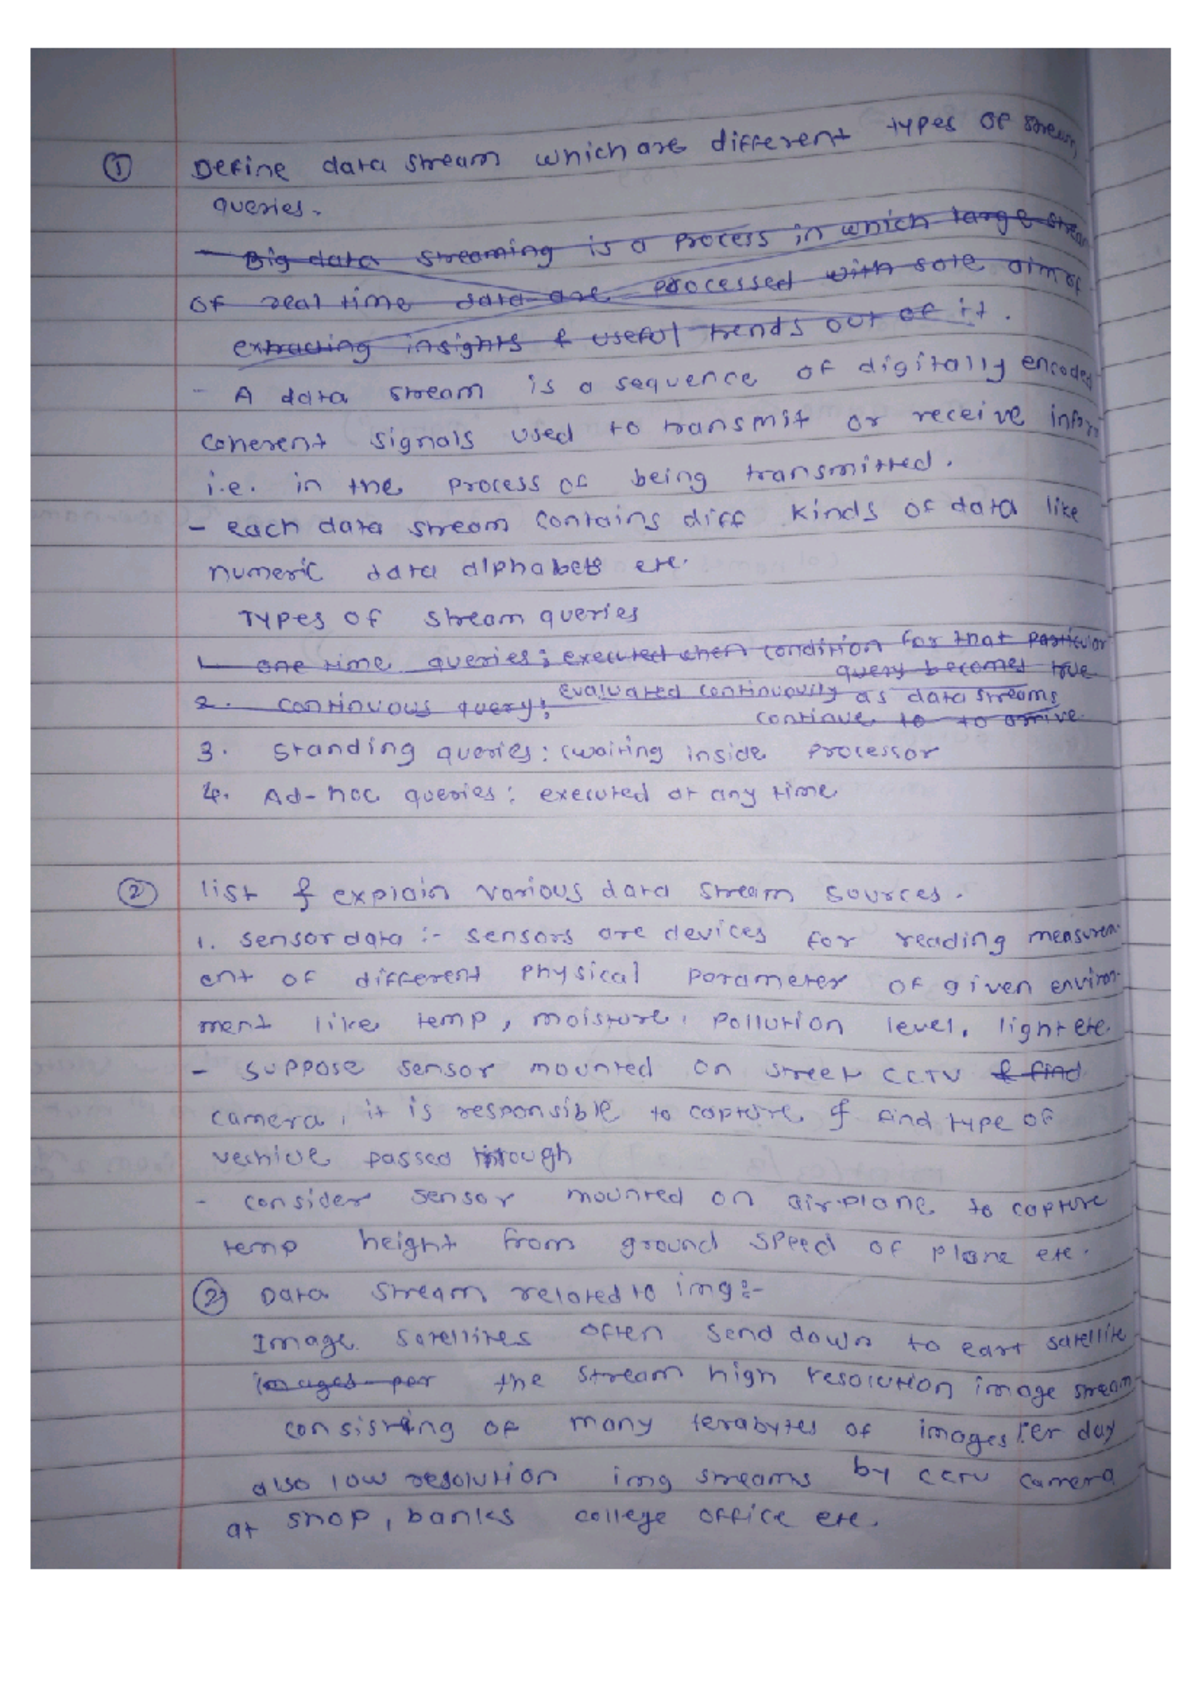 ① Define data stream which are different types of stream
queries.
- Big data streaming is a process in which large strea
of real time data are processed with sole aim of
extracting insights & useful trends out of it.
- A data stream is a sequence of digitally encoded
coherent signals used to transmit or receive infor
i.e. in the process of being transmitted.
- each data stream contains diff kinds of data like
numeric data alphabets etc.
Types of stream queries
1. one time queries; executed when condition for that particular
query becomes true
2. continuous query; evaluated continuously as data streams
continue to to arrive.
3. Standing queries: (waiting inside processor
4. Ad-hoc queries: executed at any time
② list & explain various data stream sources.
1. sensor data :- sensors are devices for reading measurem-
ent of different physical parameter of given environ-
ment like temp, moisture, pollution level, light etc.
- suppose sensor mounted on street CCTV & find
camera, it is responsible to capture & find type of
vechive passed through
- consider sensor mounted on airplane to capture
temp height from ground speed of plane etc.
② Data stream related to img:-
Image satellites often send down to eart satellite
images per the stream high resolution image stream
consisting of many terabytes of images per day
also low resolution img streams by CCTV camera
at shop, banks college office etc.